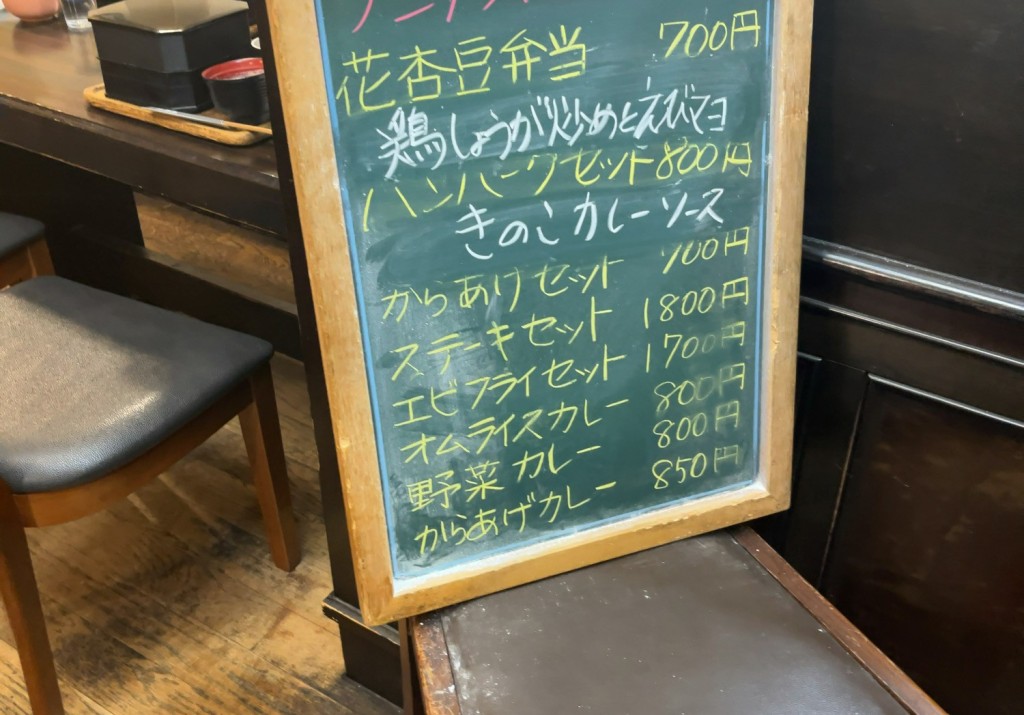 花杏豆弁当 700円
鶏しょうが炒めとえびマヨ
ハンバーグセット 800円
きのこカレーソース
からあげセット 700円
ステーキセット 1800円
エビフライセット 1700円
オムライスカレー 800円
野菜カレー 800円
からあげカレー 850円